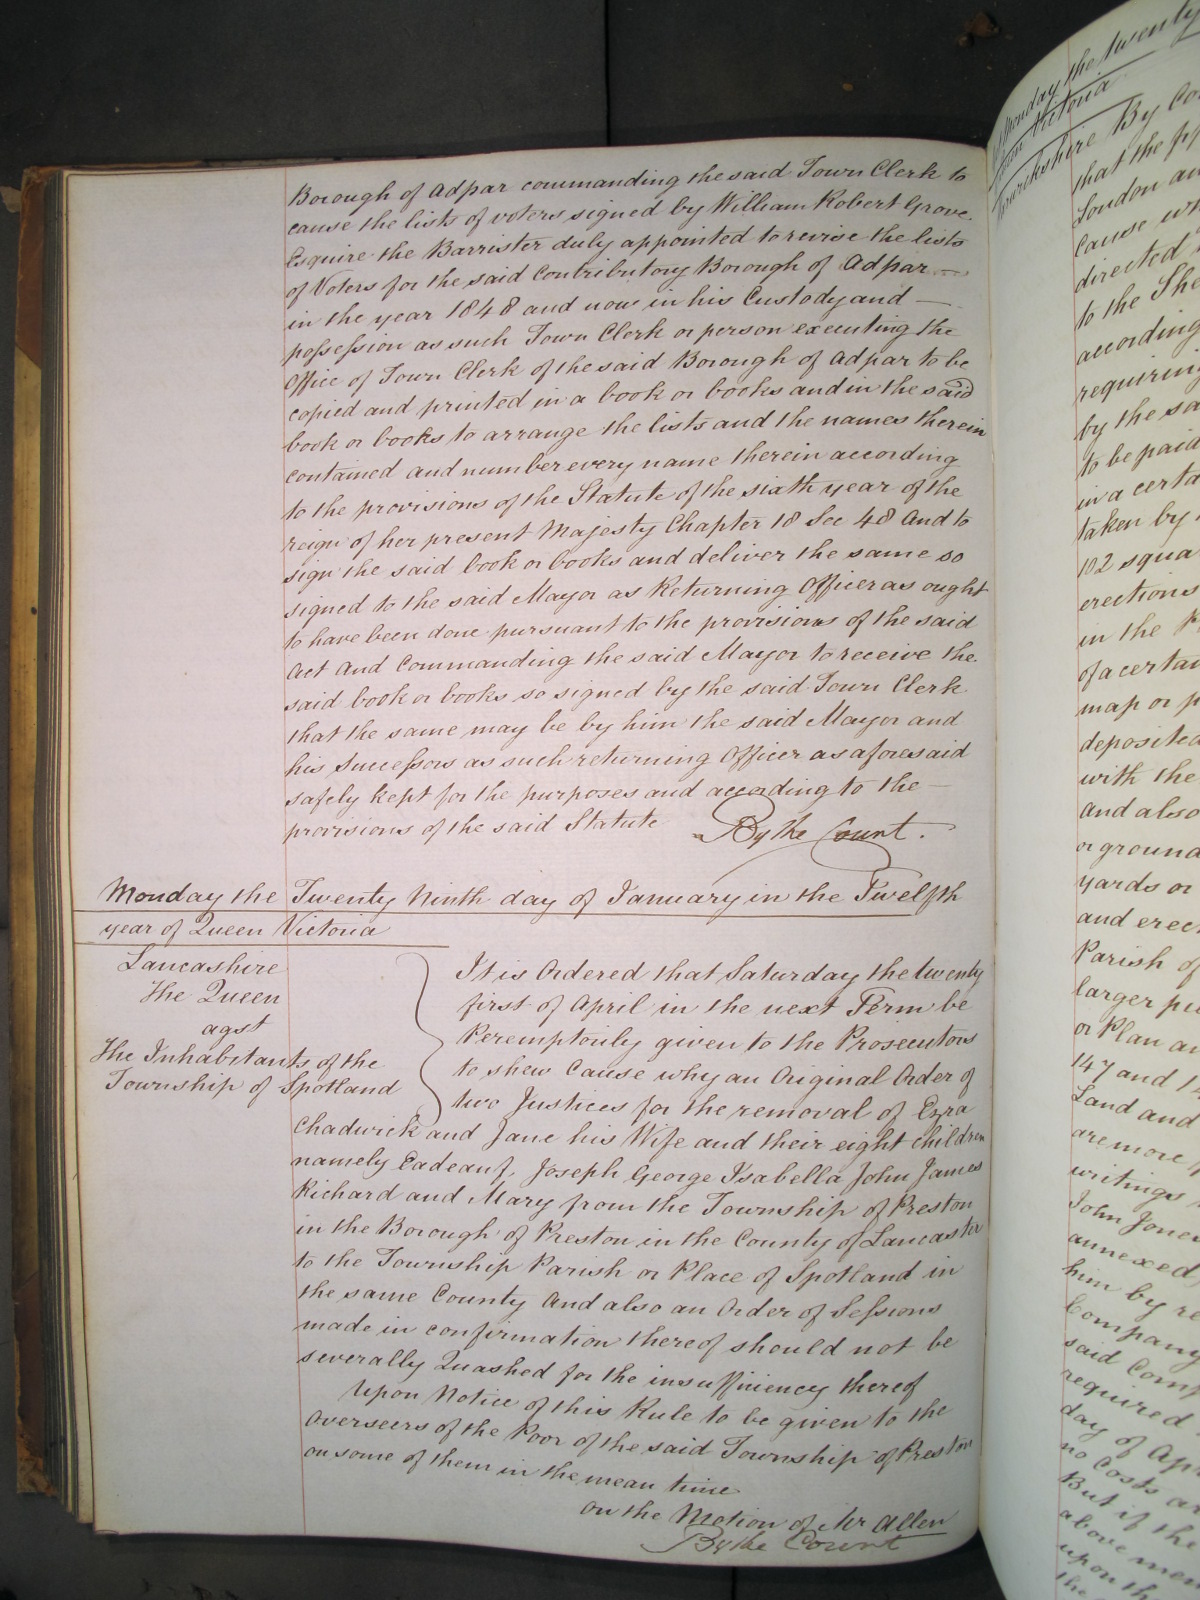 Borough of Adpar commanding the said Town Clerk to
cause the lists of voters signed by William Robert Grove
Esquire the Barrister duly appointed to revise the lists
of Voters for the said Contributory Borough of Adpar —
in the year 1848 and now in his Custody and —
possession as such Town Clerk or person executing the
Office of Town Clerk of the said Borough of Adpar to be
copied and printed in a book or books and in the said
book or books to arrange the lists and the names therein
contained and number every name therein according
to the provisions of the Statute of the sixth year of the
reign of her present Majesty Chapter 18 Sec 48 And to
sign the said book or books and deliver the same so
signed to the said Mayor as Returning Officer as ought
to have been done pursuant to the provisions of the said
Act And Commanding the said Mayor to receive the
said book or books so signed by the said Town Clerk
that the same may be by him the said Mayor and
his Successors as such returning Officer as aforesaid
safely kept for the purposes and according to the —
provisions of the said Statute By the Court.
Monday the Twenty Ninth day of January in the Twelfth
year of Queen Victoria
Lancashire
The Queen
agst
The Inhabitants of the
Township of Spotland
It is Ordered that Saturday the twenty
first of April in the next Term be
Peremptorily given to the Prosecutors
to shew Cause why an Original Order of
two Justices for the removal of Ezra
Chadwick and Jane his Wife and their eight children
namely Joseph George Isabella John James
Richard and Mary from the Township of Preston
in the Borough of Preston in the County of Lancaster
to the Township Parish or Place of Spotland in
the same County And also an Order of Sessions
made in confirmation thereof should not be
severally Quashed for the insufficiency thereof
Upon Notice of this Rule to be given to the
Overseers of the Poor of the said Township of Preston
or some of them in the mean time
On the Motion of Mr Allen
By the Court
Monday the twenty
Victoria
By Co
that the
London an
Cause
directed
to the She
according
requiring
by the sa
to be paid
in a certa
taken by
102 squa
erections
in the
of a certai
map or p
deposited
with the
And also
or ground
yards or
and erec
Parish of
larger
or Plan an
147 and
Land and
are more
writings
John Jones
annexed
him by re
Company
said Comp
required
day of Ap
no Costs
But if the
above men
upon th
the